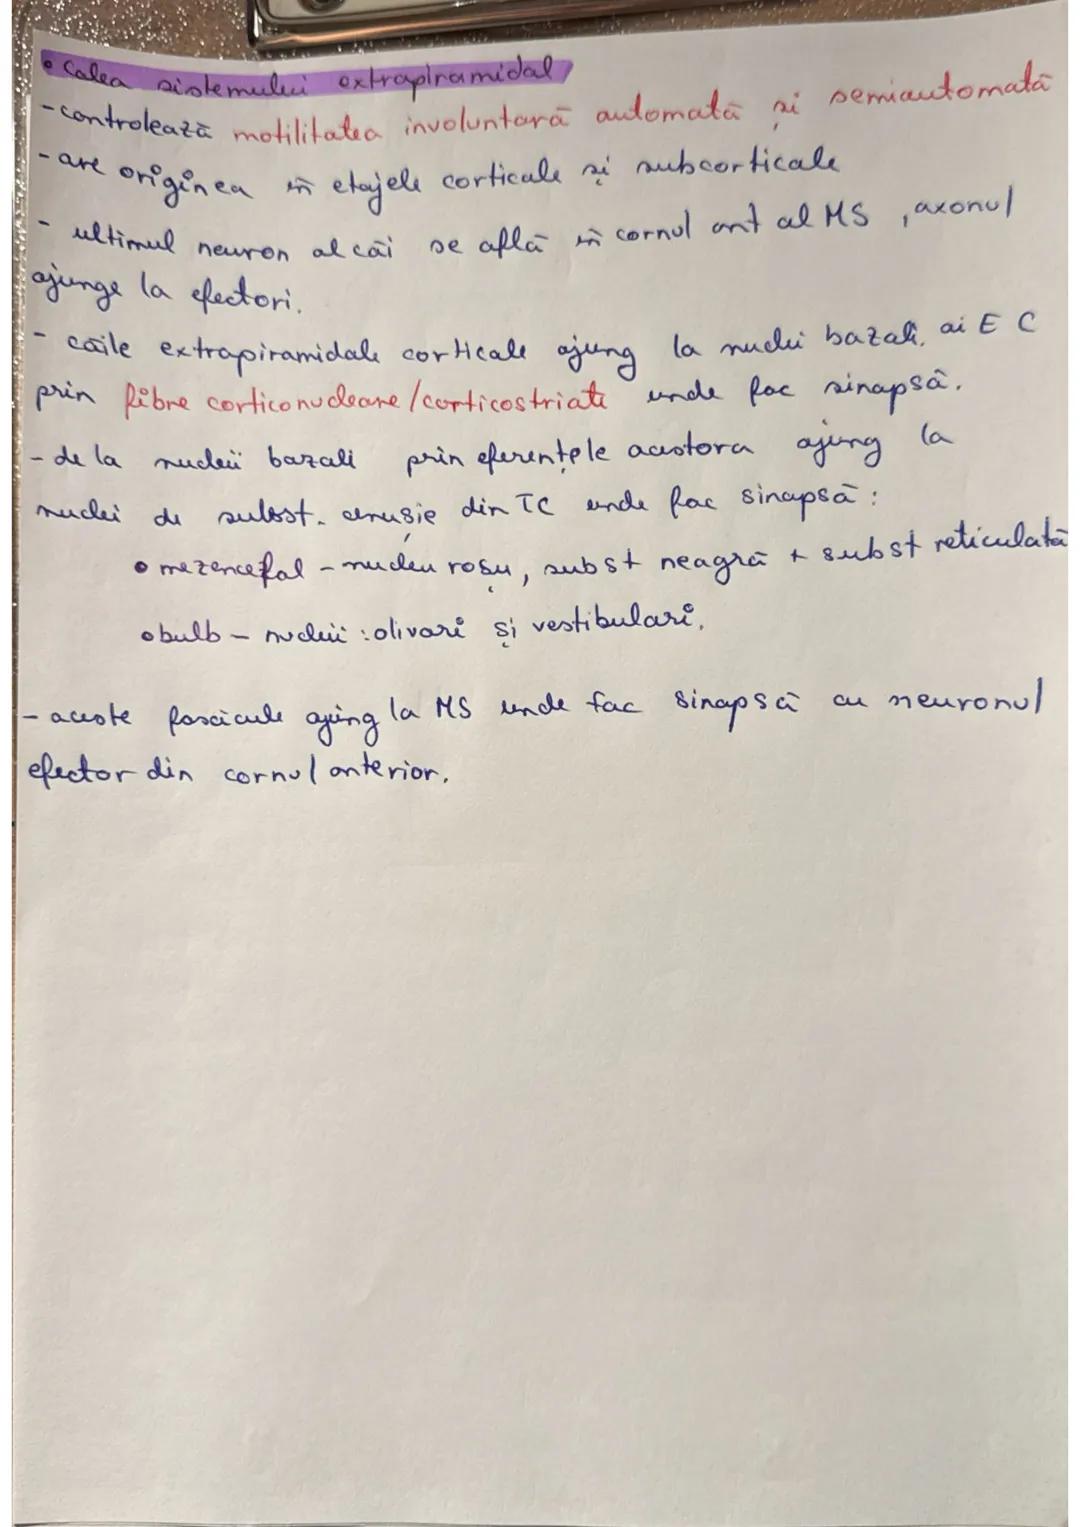 • Calea sistemului extrapiramidal
- controlează motilitatea involuntară automată și semiautomată
- are originea în etajele corticale și subcorticale
- ultimul neuron al căi se află în cornul ant al MS, axonul
ajunge la efectori.
- căile extrapiramidale corticale ajung la nuclei bazali, ai E C
prin fibre corticonucleare/corticostriate unde fac sinapsă.
- de la nucleii bazali prin eferențele acestora ajung la
nuclei de subst. cenușie din TC unde fac sinapsă:
• mezencefal - nucleu roșu, subst neagră + subst reticulată
• bulb - nucleii: olivari și vestibulari.
- aceste fascicule ajung la MS unde fac sinapsă cu neuronul
efector din cornul anterior.